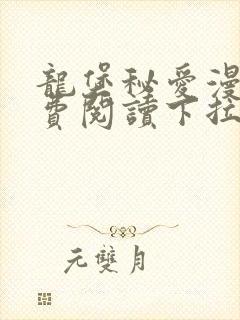 龍堡秘愛漫
費閱讀下拉
元雙月